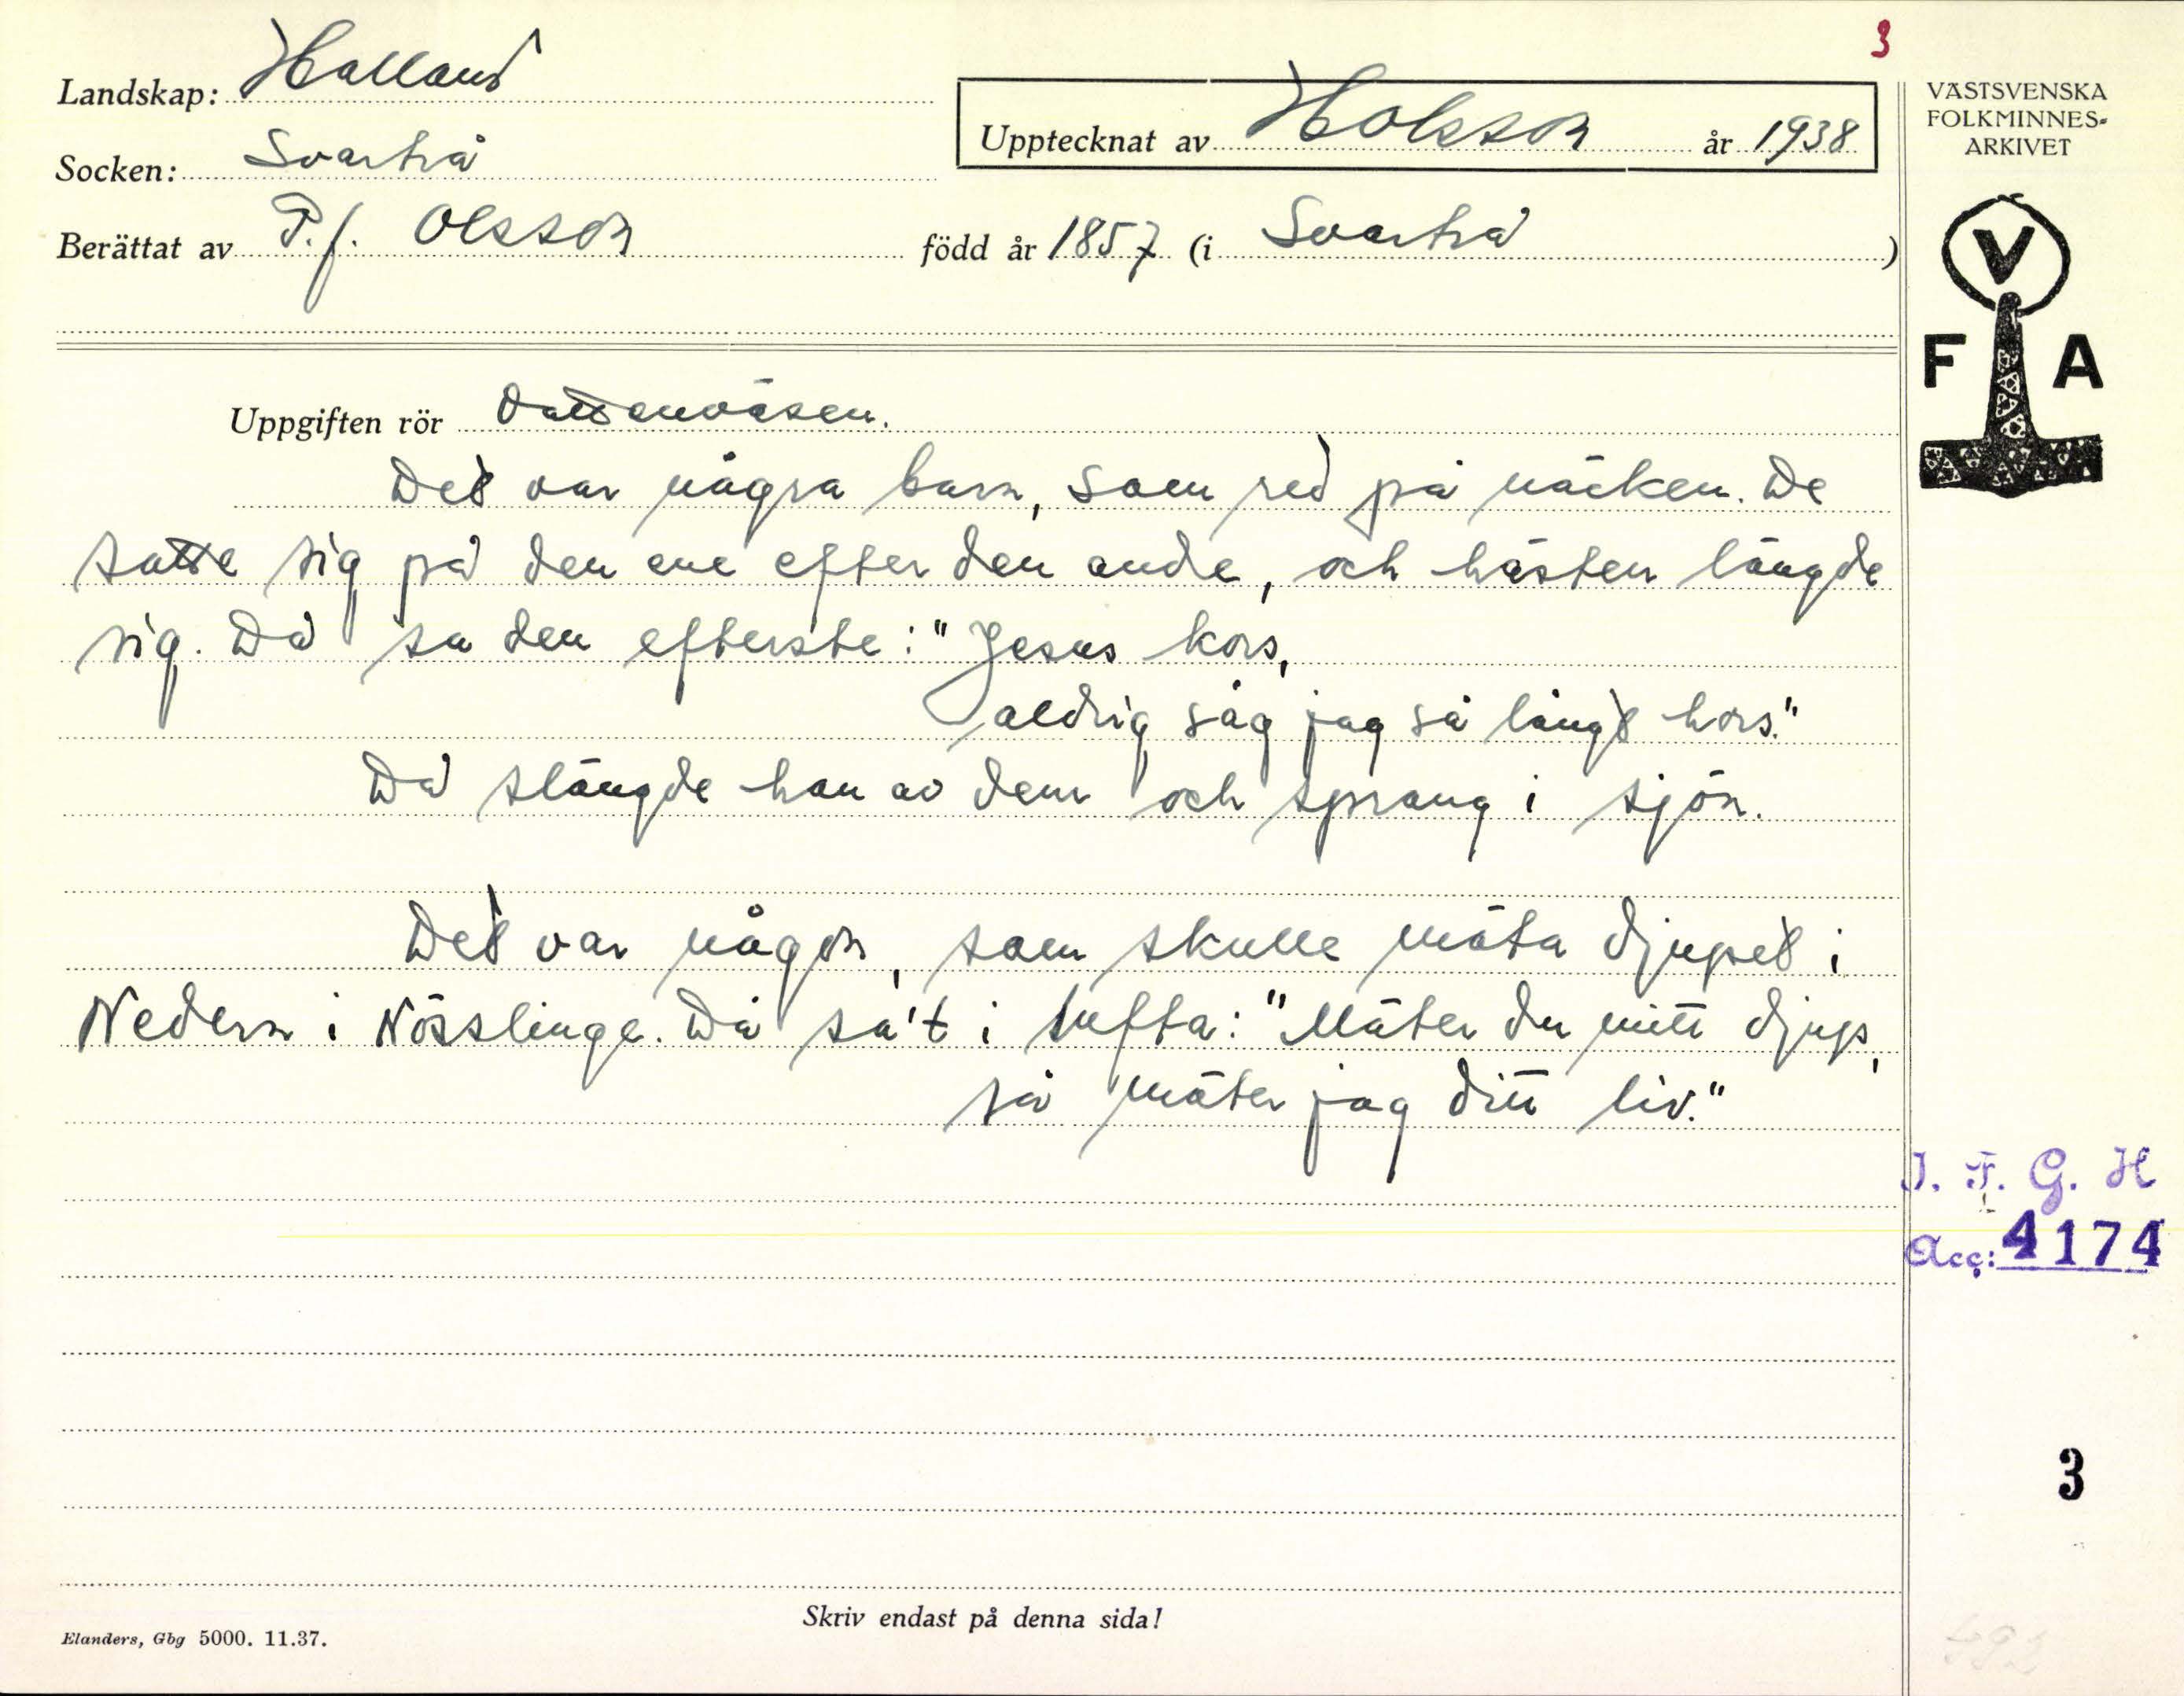 3
Landskap: Halland
Upptecknat av HOlsson år 1938
VÄSTSVENSKA
FOLKMINNES-
ARKIVET
Socken: Svartrå
Berättat av P.J. Olsson född år 1857 (i Svartrå)
V
F A
Uppgiften rör Vattenväsen.
Det var några barn, som red på näcken. De
satte sig på den ene efter den andre, och hästen längde
sig. Då sa den efterste: "Jesus kors,
aldrig såg jag så långt hors."
Då slängde han av dem och sprang i sjön.
Det var någon, som skulle mäta djupet i
Nedern i Nösslinge. Då sa't i lufta: "Mäter du mitt djup,
så mäter jag ditt liv."
I. F. G. H
Acc: 4174
3
Skriv endast på denna sida!
Elanders, Gbg 5000. 11.37.